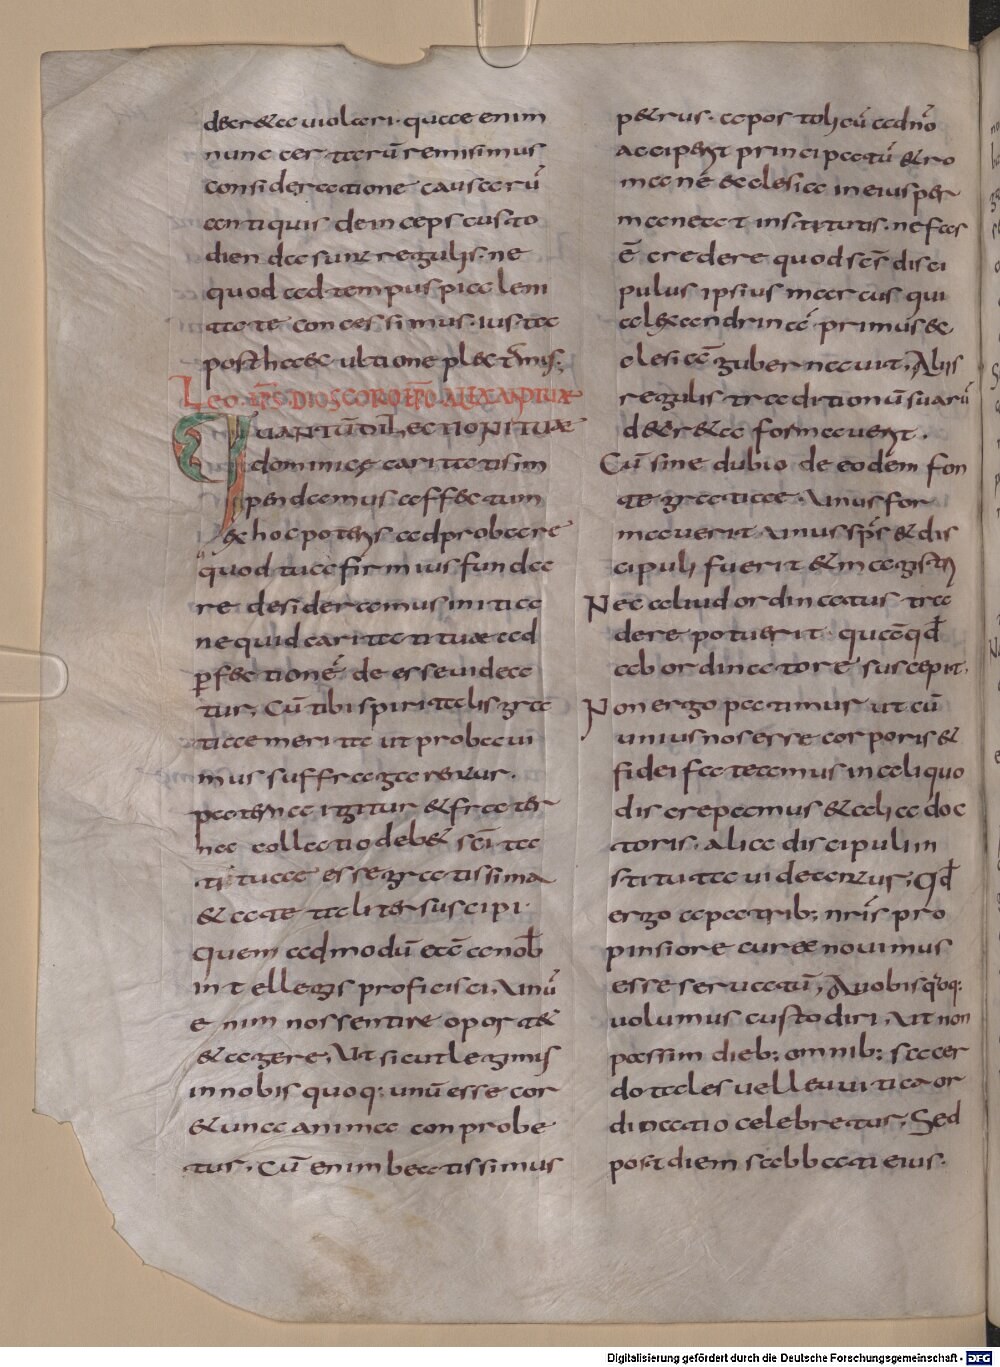 decreta uiolari. quae enim
nunc certarū remisimus
consideratione causarū
antiquis deinceps custo
diendae sunt regulis. ne
quod ad tempus pia leni
tate concessimus. iusta
posthaec ultione plectam̄;
Leo ep̄s dioscoro ep̄o alexandriae
Quantū dilectioni tuae
dominicę caritatis im
pendamus affectum
ex hoc potes adprobare
quod tua firmius funda
re desideramus initia
ne quid caritati tuae ad
perfectionē deesse uidea
tur, Cū tibi spiritalis gra
tiae merita ut probaui
mus suffragarentur.
paterna igitur & frater
na collatio deb& sc̄ita
ti tuae esse gratissima
& a te taliter suscipi.
quem admodū eā a nob
intellegis proficisci, Unū
enim nos sentire oport&
& agere, Ut sicut legimus
in nobis quoq; unū esse cor
& una anima conprobe
tur, Cū enim beatissimus
petrus. apostolicū a dn̄o
acciperit principatū & ro
mane ecclesia in eius per
maneat institutis. nefas
ē credere quod sc̄s disci
pulus ipsius marcus qui
alexandrinā primus ec
clesiā gubernauit, Aliis
regulis traditionū suarū
decreta formauerit.
Cū sine dubio de eodem fon
te gratiae. Unus for
mauerit unus sp̄s & dis
cipuli fuerit & magistri
Nec aliud ordinatus tra
dere potuerit. quā qd
ab ordinatore suscepit.
Non ergo patimur ut cū
unius nos esse corporis &
fidei fateamus in aliquo
discrepamus & alia doc
toris. alia discipuli in
stituta uideantur, Qd
ergo a patrib; nr̄is pro
pinsiore cura nouimus
esse seruatū, A uobis quoq;
uolumus custodiri, Ut non
passim dieb; omnib; sacer
dotales uel leuitica or
dinatio celebretur, Sed
post diem sabbati eius.
Digitalisierung gefördert durch die Deutsche Forschungsgemeinschaft - DFG